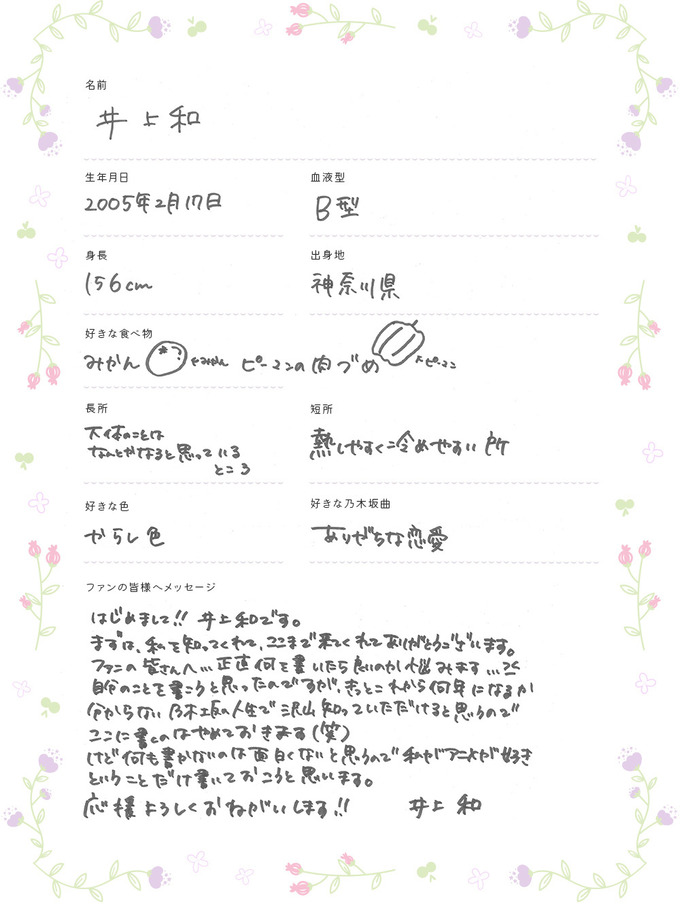 名前
井上和
生年月日
血液型
2005年2月17日
B型
身長
出身地
156cm
神奈川県
好きな食べ物
みかん ←みかん ピーマンの肉づめ ←ピーマン
長所
短所
大体のことは
なんとかなると思っている
ところ
熱しやすく冷めやすい所
好きな色
好きな乃木坂曲
からし色
ありがちな恋愛
ファンの皆様へメッセージ
はじめまして!! 井上和です。
まずは、私を知ってくれて、ここまで来てくれてありがとうございます。
ファンの皆さんへ…正直何を書いたら良いのか悩みます…
自分のことを書こうと思ったのですが、きっとこれから何年になるか
分からない乃木坂の人生で沢山知っていただけると思うので
ここに書くのはやめておきます(笑)
けど何も書かないのは面白くないと思うので私がアニメが好き
ということだけ書いておこうと思います。
応援よろしくおねがいします!! 井上和